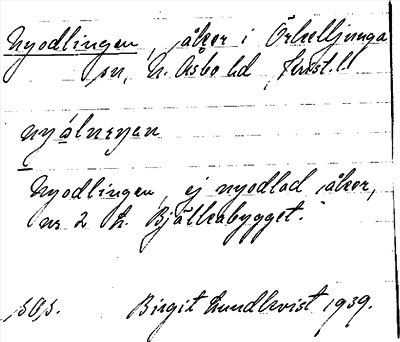 Nyodlingen, åker i Örkelljunga
sn, N. Åsbo hd, Krist.l.
nyálneɲan
Nyodlingen, ej nyodlad åker,
nr 2 h. Bjälkabygget.
Birgit Lundkvist 1939.